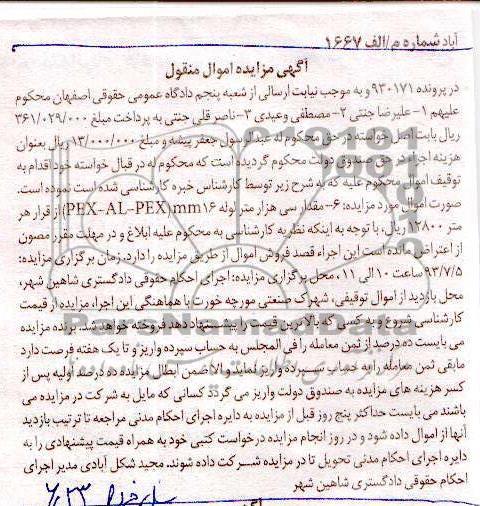 آباد شماره م/الف ۱۶۶۷
آگهی مزایده اموال منقول
در پرونده ۹۳۰۱۷۱ و به موجب نیابت ارسالی از شعبه پنجم دادگاه عمومی حقوقی اصفهان محکوم
علیهم ۱- علیرضا جنتی ۲- مصطفی وعیدی ۳- ناصر قلی جنتی به پرداخت مبلغ ۳۶۱/۰۲۹/۰۰۰
ریال بابت اصل خواسته در حق محکوم له عبدالرسول جعفر پیشه و مبلغ ۱۳/۰۰۰/۰۰۰ ریال بعنوان
هزینه اجراء در حق صندوق دولت محکوم گردیده است که محکوم له در قبال خواسته خود اقدام به
توقیف اموال محکوم علیه که به شرح زیر توسط کارشناس خبره کارشناسی شده است نموده است.
صورت اموال مورد مزایده: ۶- مقدار سی هزار متر لوله ۱۶ mm(PEX-AL-PEX) از قرار هر
متر ۱۲۸۰۰ ریال، با توجه به اینکه نظریه کارشناسی به محکوم علیه ابلاغ و در مهلت مقرر مصون
از اعتراض مانده است این اجراء قصد فروش اموال از طریق مزایده را دارد، زمان برگزاری مزایده:
۹۳/۷/۵ ساعت ۱۰ الی ۱۱، محل برگزاری مزایده: اجرای احکام حقوقی دادگستری شاهین شهر،
محل بازدید از اموال توقیفی، شهرک صنعتی مورچه خورت با هماهنگی این اجراء، مزایده از قیمت
کارشناسی شروع و به کسی که بالاترین قیمت را پیشنهاد دهد فروخته خواهد شد. برنده مزایده
می بایست ده درصد از ثمن معامله را فی المجلس به حساب سپرده واریز و تا یک هفته فرصت دارد
مابقی ثمن معامله را به حساب سپرده واریز نماید والا ضمن ابطال مزایده ده درصد اولیه پس از
کسر هزینه های مزایده به صندوق دولت واریز می گردد کسانی که مایل به شرکت در مزایده می
باشند می بایست حداکثر پنج روز قبل از مزایده به دایره اجرای احکام مدنی مراجعه تا ترتیب بازدید
آنها از اموال داده شود و در روز انجام مزایده درخواست کتبی خود به همراه قیمت پیشنهادی را به
دایره اجرای احکام مدنی تحویل تا در مزایده شرکت داده شوند. مجید شکل آبادی مدیر اجرای
احکام حقوقی دادگستری شاهین شهر
۶/۲۳